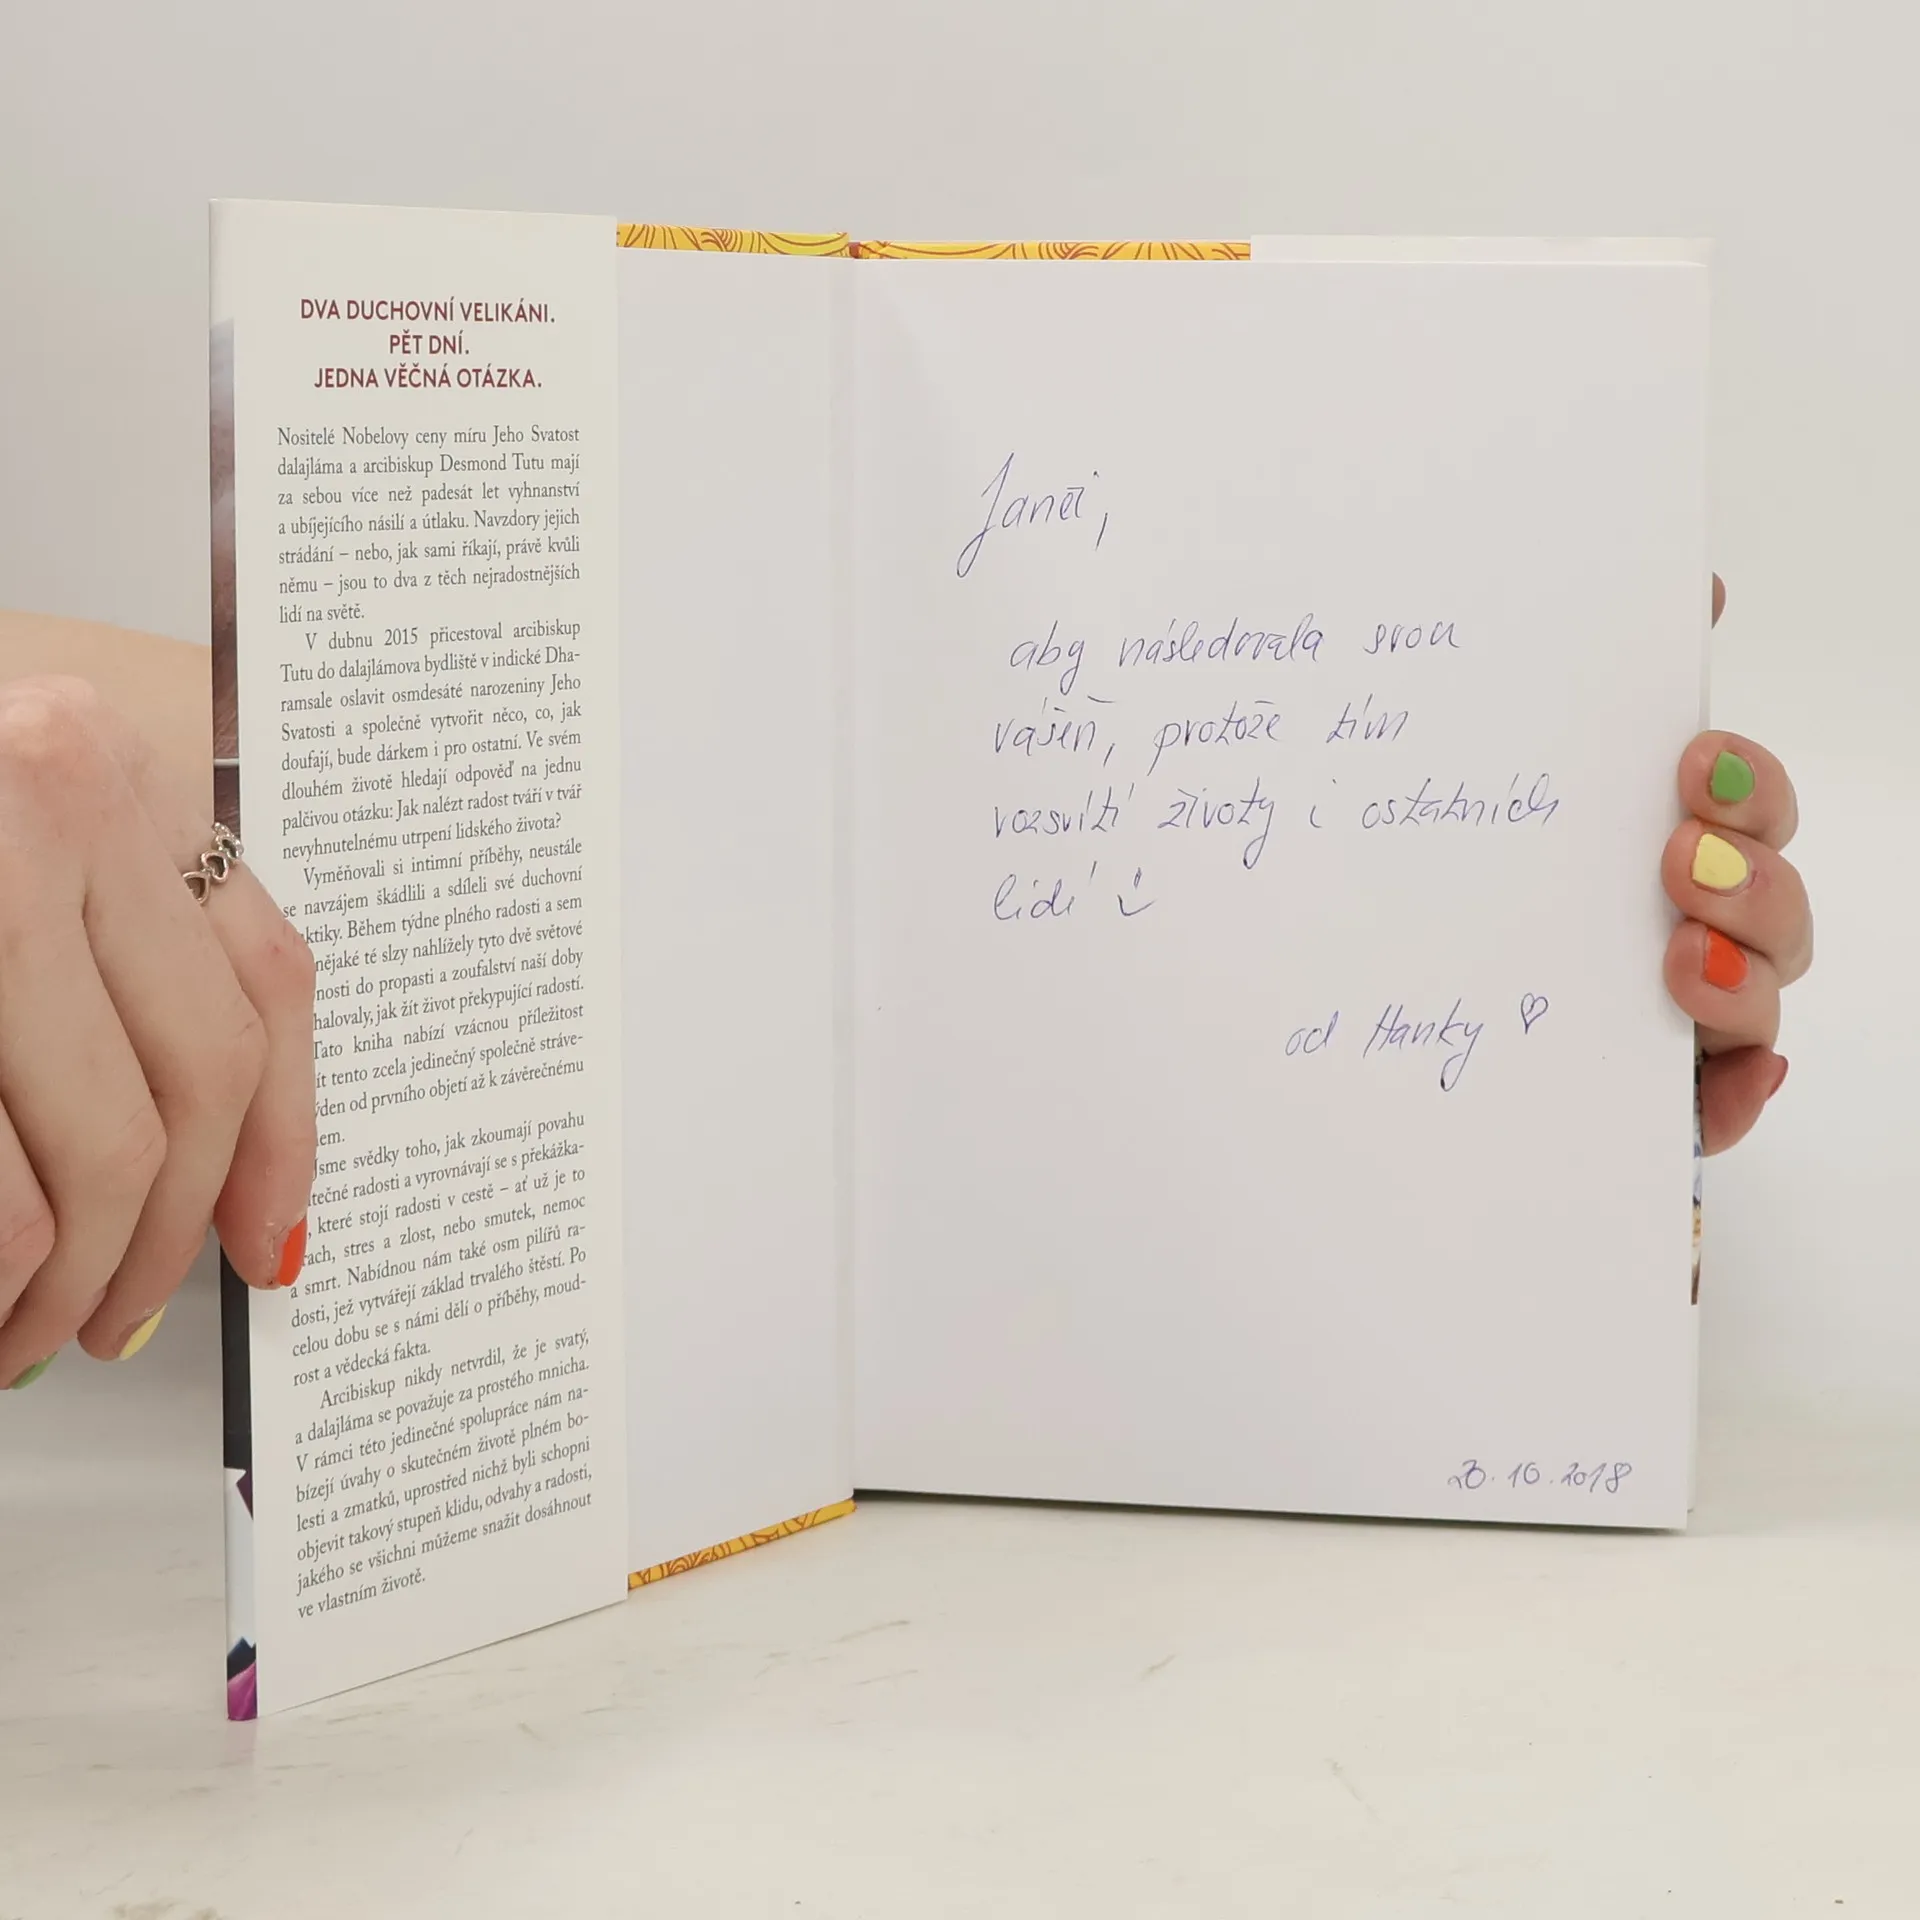 DVA DUCHOVNÍ VELIKÁNI.
PĚT DNÍ.
JEDNA VĚČNÁ OTÁZKA.
Nositelé Nobelovy ceny míru Jeho Svatost
dalajláma a arcibiskup Desmond Tutu mají
za sebou více než padesát let vyhnanství
a ubíjejícího násilí a útlaku. Navzdory jejich
strádání – nebo, jak sami říkají, právě kvůli
němu – jsou to dva z těch nejradostnějších
lidí na světě.
V dubnu 2015 přicestoval arcibiskup
Tutu do dalajlámova bydliště v indické Dha-
ramsale oslavit osmdesáté narozeniny Jeho
Svatosti a společně vytvořit něco, co, jak
doufají, bude dárkem i pro ostatní. Ve svém
dlouhém životě hledají odpověď na jednu
palčivou otázku: Jak nalézt radost tváří v tvář
nevyhnutelnému utrpení lidského života?
Vyměňovali si intimní příběhy, neustále
se navzájem škádlili a sdíleli své duchovní
ktiky. Během týdne plného radosti a sem
nějaké té slzy nahlížely tyto dvě světové
nosti do propasti a zoufalství naší doby
halovaly, jak žít život překypující radostí.
Tato kniha nabízí vzácnou příležitost
ít tento zcela jedinečný společně stráve-
den od prvního objetí až k závěrečnému
em.
Jsme svědky toho, jak zkoumají povahu
tečné radosti a vyrovnávají se s překážka-
, které stojí radosti v cestě – ať už je to
rach, stres a zlost, nebo smutek, nemoc
a smrt. Nabídnou nám také osm pilířů ra-
dosti, jež vytvářejí základ trvalého štěstí. Po
celou dobu se s námi dělí o příběhy, moud-
rost a vědecká fakta.
Arcibiskup nikdy netvrdil, že je svatý,
a dalajláma se považuje za prostého mnicha.
V rámci této jedinečné spolupráce nám na-
bízejí úvahy o skutečném životě plném bo-
lesti a zmatků, uprostřed nichž byli schopni
objevit takový stupeň klidu, odvahy a radosti,
jakého se všichni můžeme snažit dosáhnout
ve vlastním životě.
Janči,
aby následovala svou
vášeň, protože tím
rozsvítí životy i ostatních
lidí
od Hanky ♡
20.10.2018